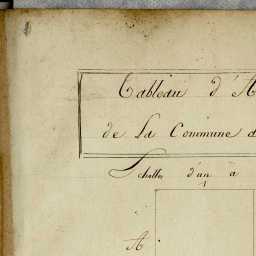 Tableau d'A
de La Commune d
Echelle d'un à
1
A